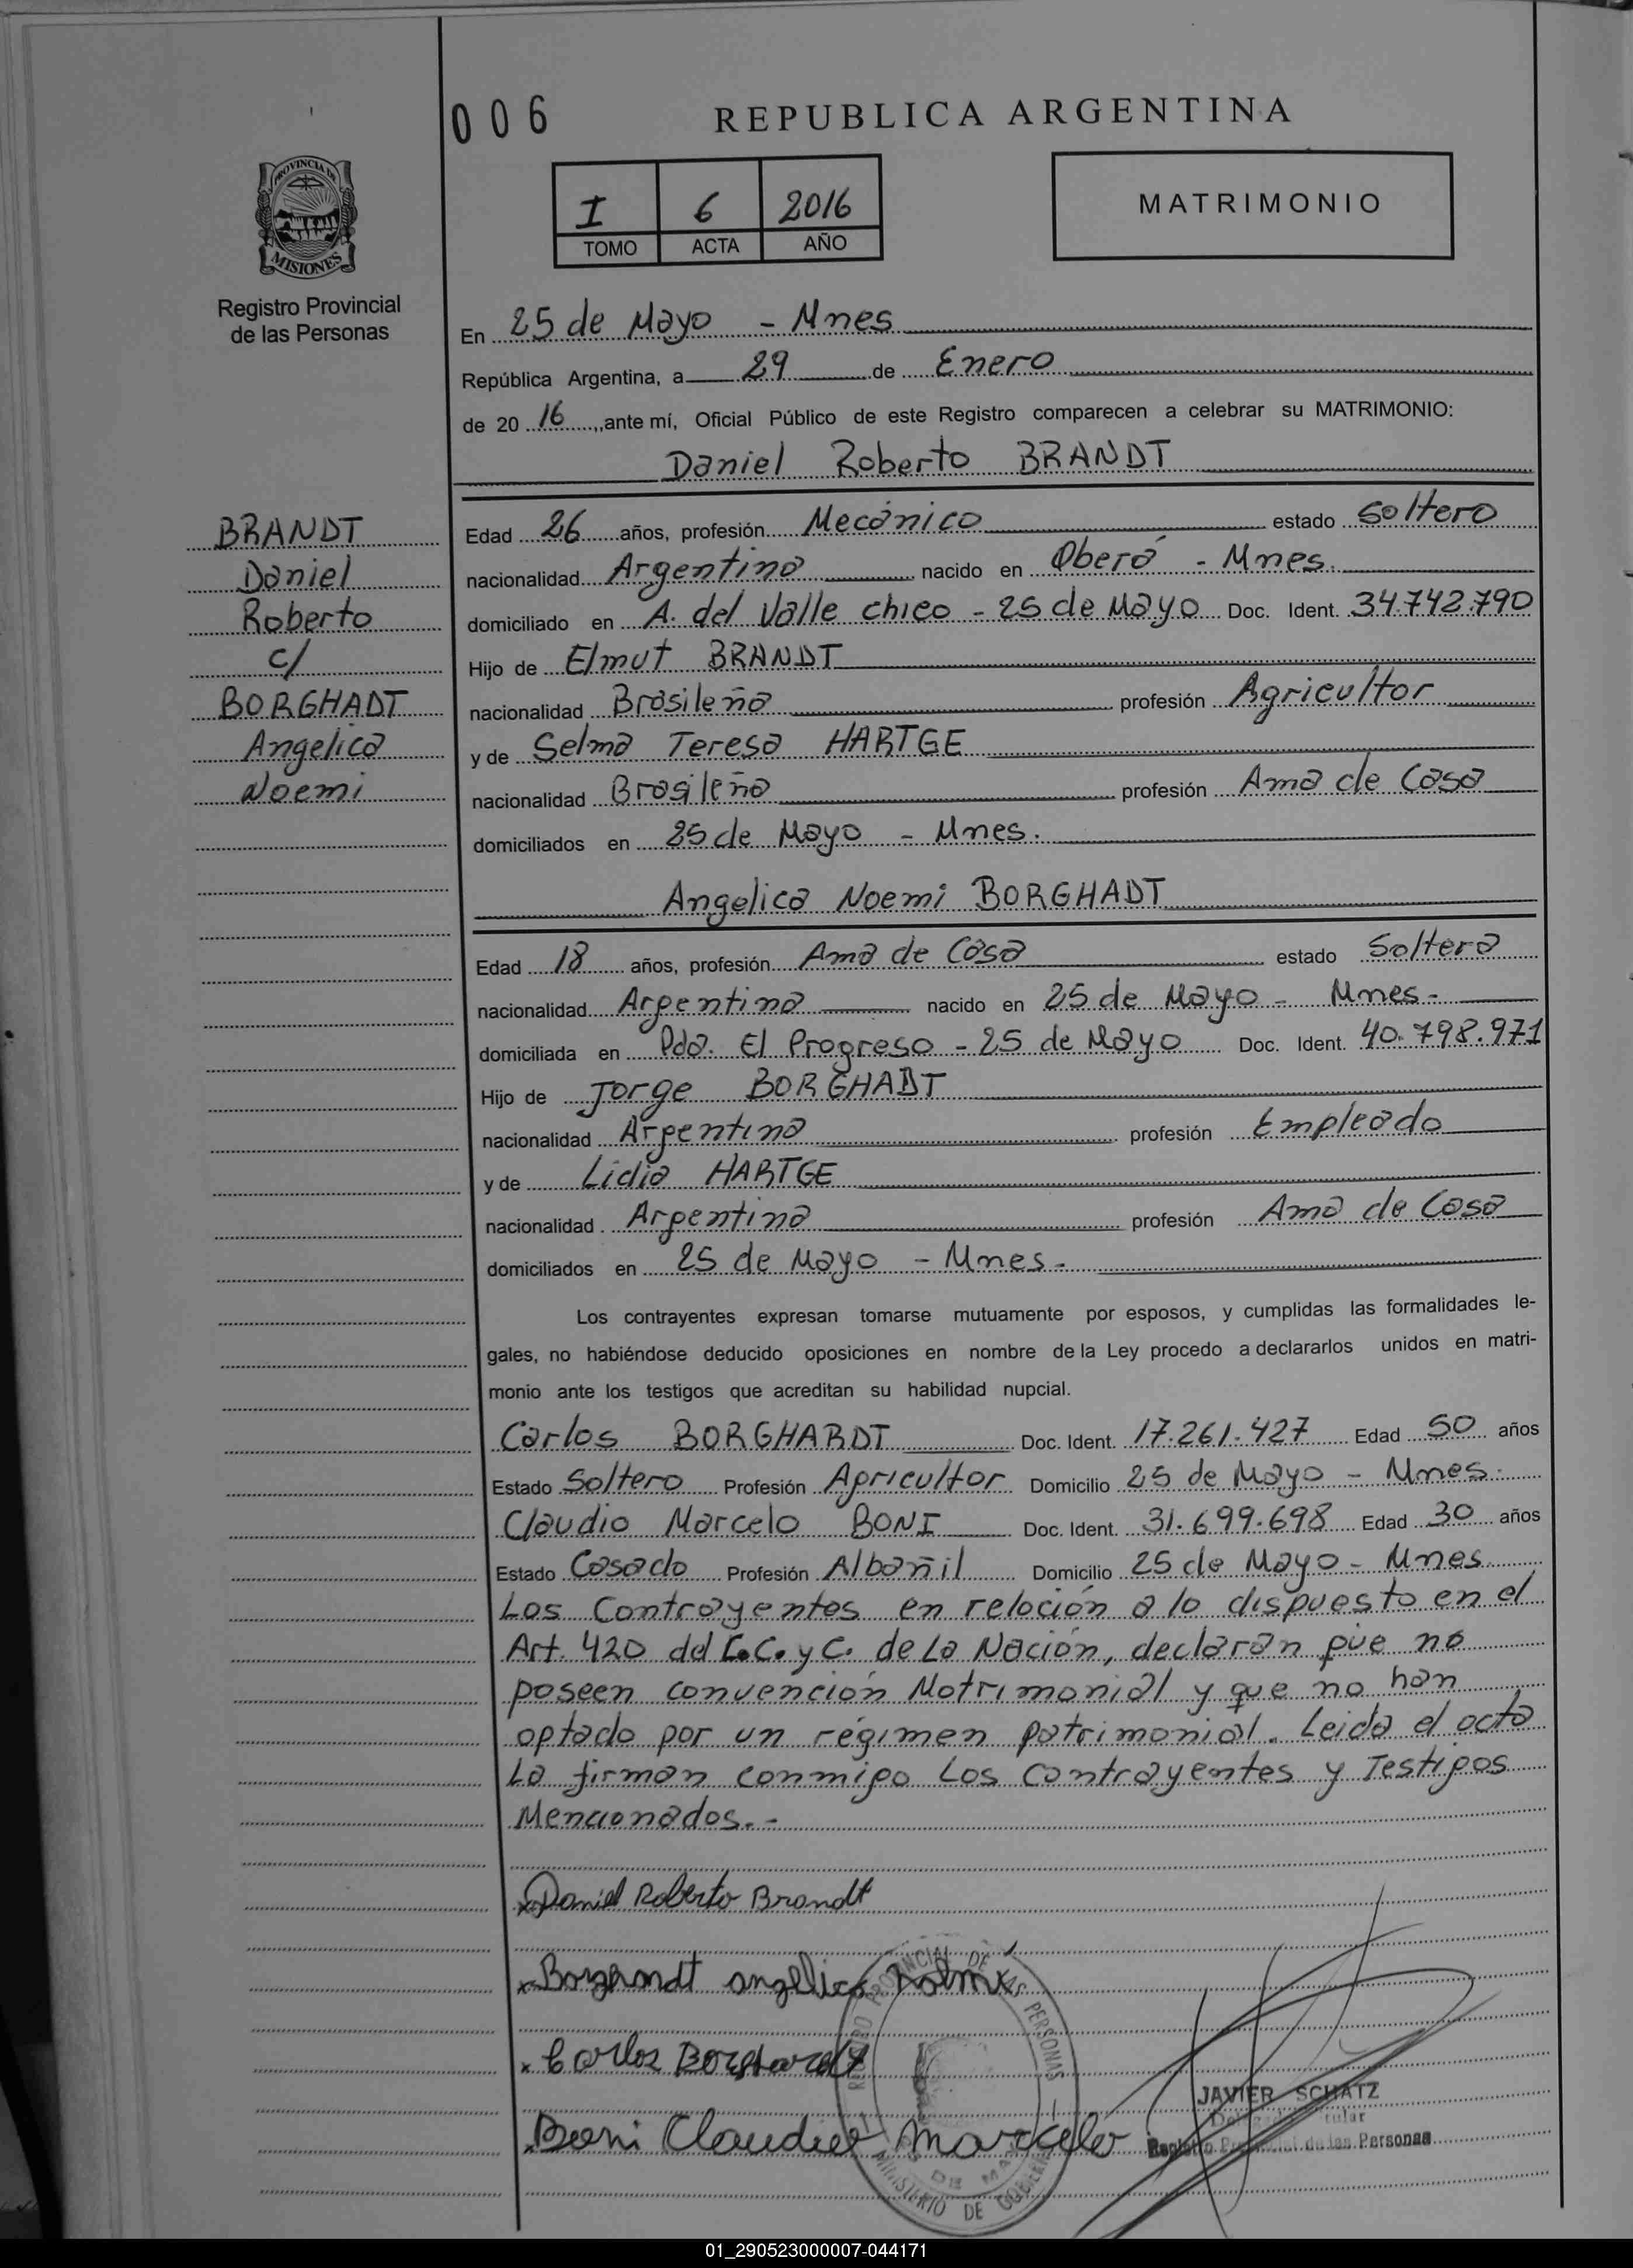 006
REPUBLICA ARGENTINA
PROVINCIA DE
MISIONES
Registro Provincial
de las Personas
I 6 2016
TOMO ACTA AÑO
MATRIMONIO
En 25 de Mayo - Mnes
República Argentina, a 29 de Enero
de 20 16, ante mí, Oficial Público de este Registro comparecen a celebrar su MATRIMONIO:
Daniel Roberto BRANDT
BRANDT
Daniel
Roberto
c/
BORGHADT
Angelica
Noemi
Edad 26 años, profesión Mecánico estado Soltero
nacionalidad Argentina nacido en Oberá - Mnes.
domiciliado en A. del Valle chico - 25 de Mayo Doc. Ident. 34.742.790
Hijo de Elmut BRANDT
nacionalidad Brasileña profesión Agricultor
y de Selma Teresa HARTGE
nacionalidad Brasileña profesión Ama de Casa
domiciliados en 25 de Mayo - Mnes.
Angelica Noemi BORGHADT
Edad 18 años, profesión Ama de Casa estado Soltera
nacionalidad Argentina nacido en 25 de Mayo - Mnes -
domiciliada en Pda. El Progreso - 25 de Mayo Doc. Ident. 40.798.971
Hijo de Jorge BORGHADT
nacionalidad Argentina profesión Empleado
y de Lidia HARTGE
nacionalidad Argentina profesión Ama de Casa
domiciliados en 25 de Mayo - Mnes -
Los contrayentes expresan tomarse mutuamente por esposos, y cumplidas las formalidades le-
gales, no habiéndose deducido oposiciones en nombre de la Ley procedo a declararlos unidos en matri-
monio ante los testigos que acreditan su habilidad nupcial.
Carlos BORGHARDT Doc. Ident. 17.261.427 Edad 50 años
Estado Soltero Profesión Agricultor Domicilio 25 de Mayo - Mnes.
Claudio Marcelo BONI Doc. Ident. 31.699.698 Edad 30 años
Estado Casado Profesión Albañil Domicilio 25 de Mayo - Mnes
Los Contrayentes en relación a lo dispuesto en el
Art. 420 del C.C. y C. de La Nación, declaran que no
poseen convención Matrimonial y que no han
optado por un régimen patrimonial. Leida el acta
La firman conmigo Los Contrayentes y Testigos
Mencionados. -
x Daniel Roberto Brandt
x Borghardt angelica Noemi
x Carlos Borghardt
x Boni Claudio Marcelo
REGISTRO PROVINCIAL DE LAS PERSONAS
MINISTERIO DE GOBIERNO
JAVIER SCHATZ
Registro Provincial de las Personas
01_290523000007-044171